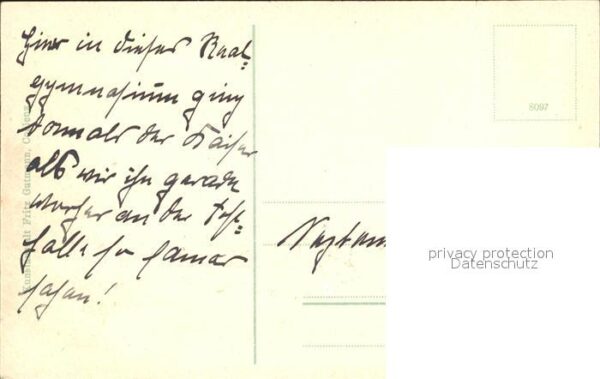 Hier in dieser Real-
gymnasium ging
damals der Kaiser
als wir ihn gerade
vorher an der Fest-
halle so famos
sahen!
Kunstanstalt Fritz Gutmann, Coblenz
8097
privacy protection
Datenschutz